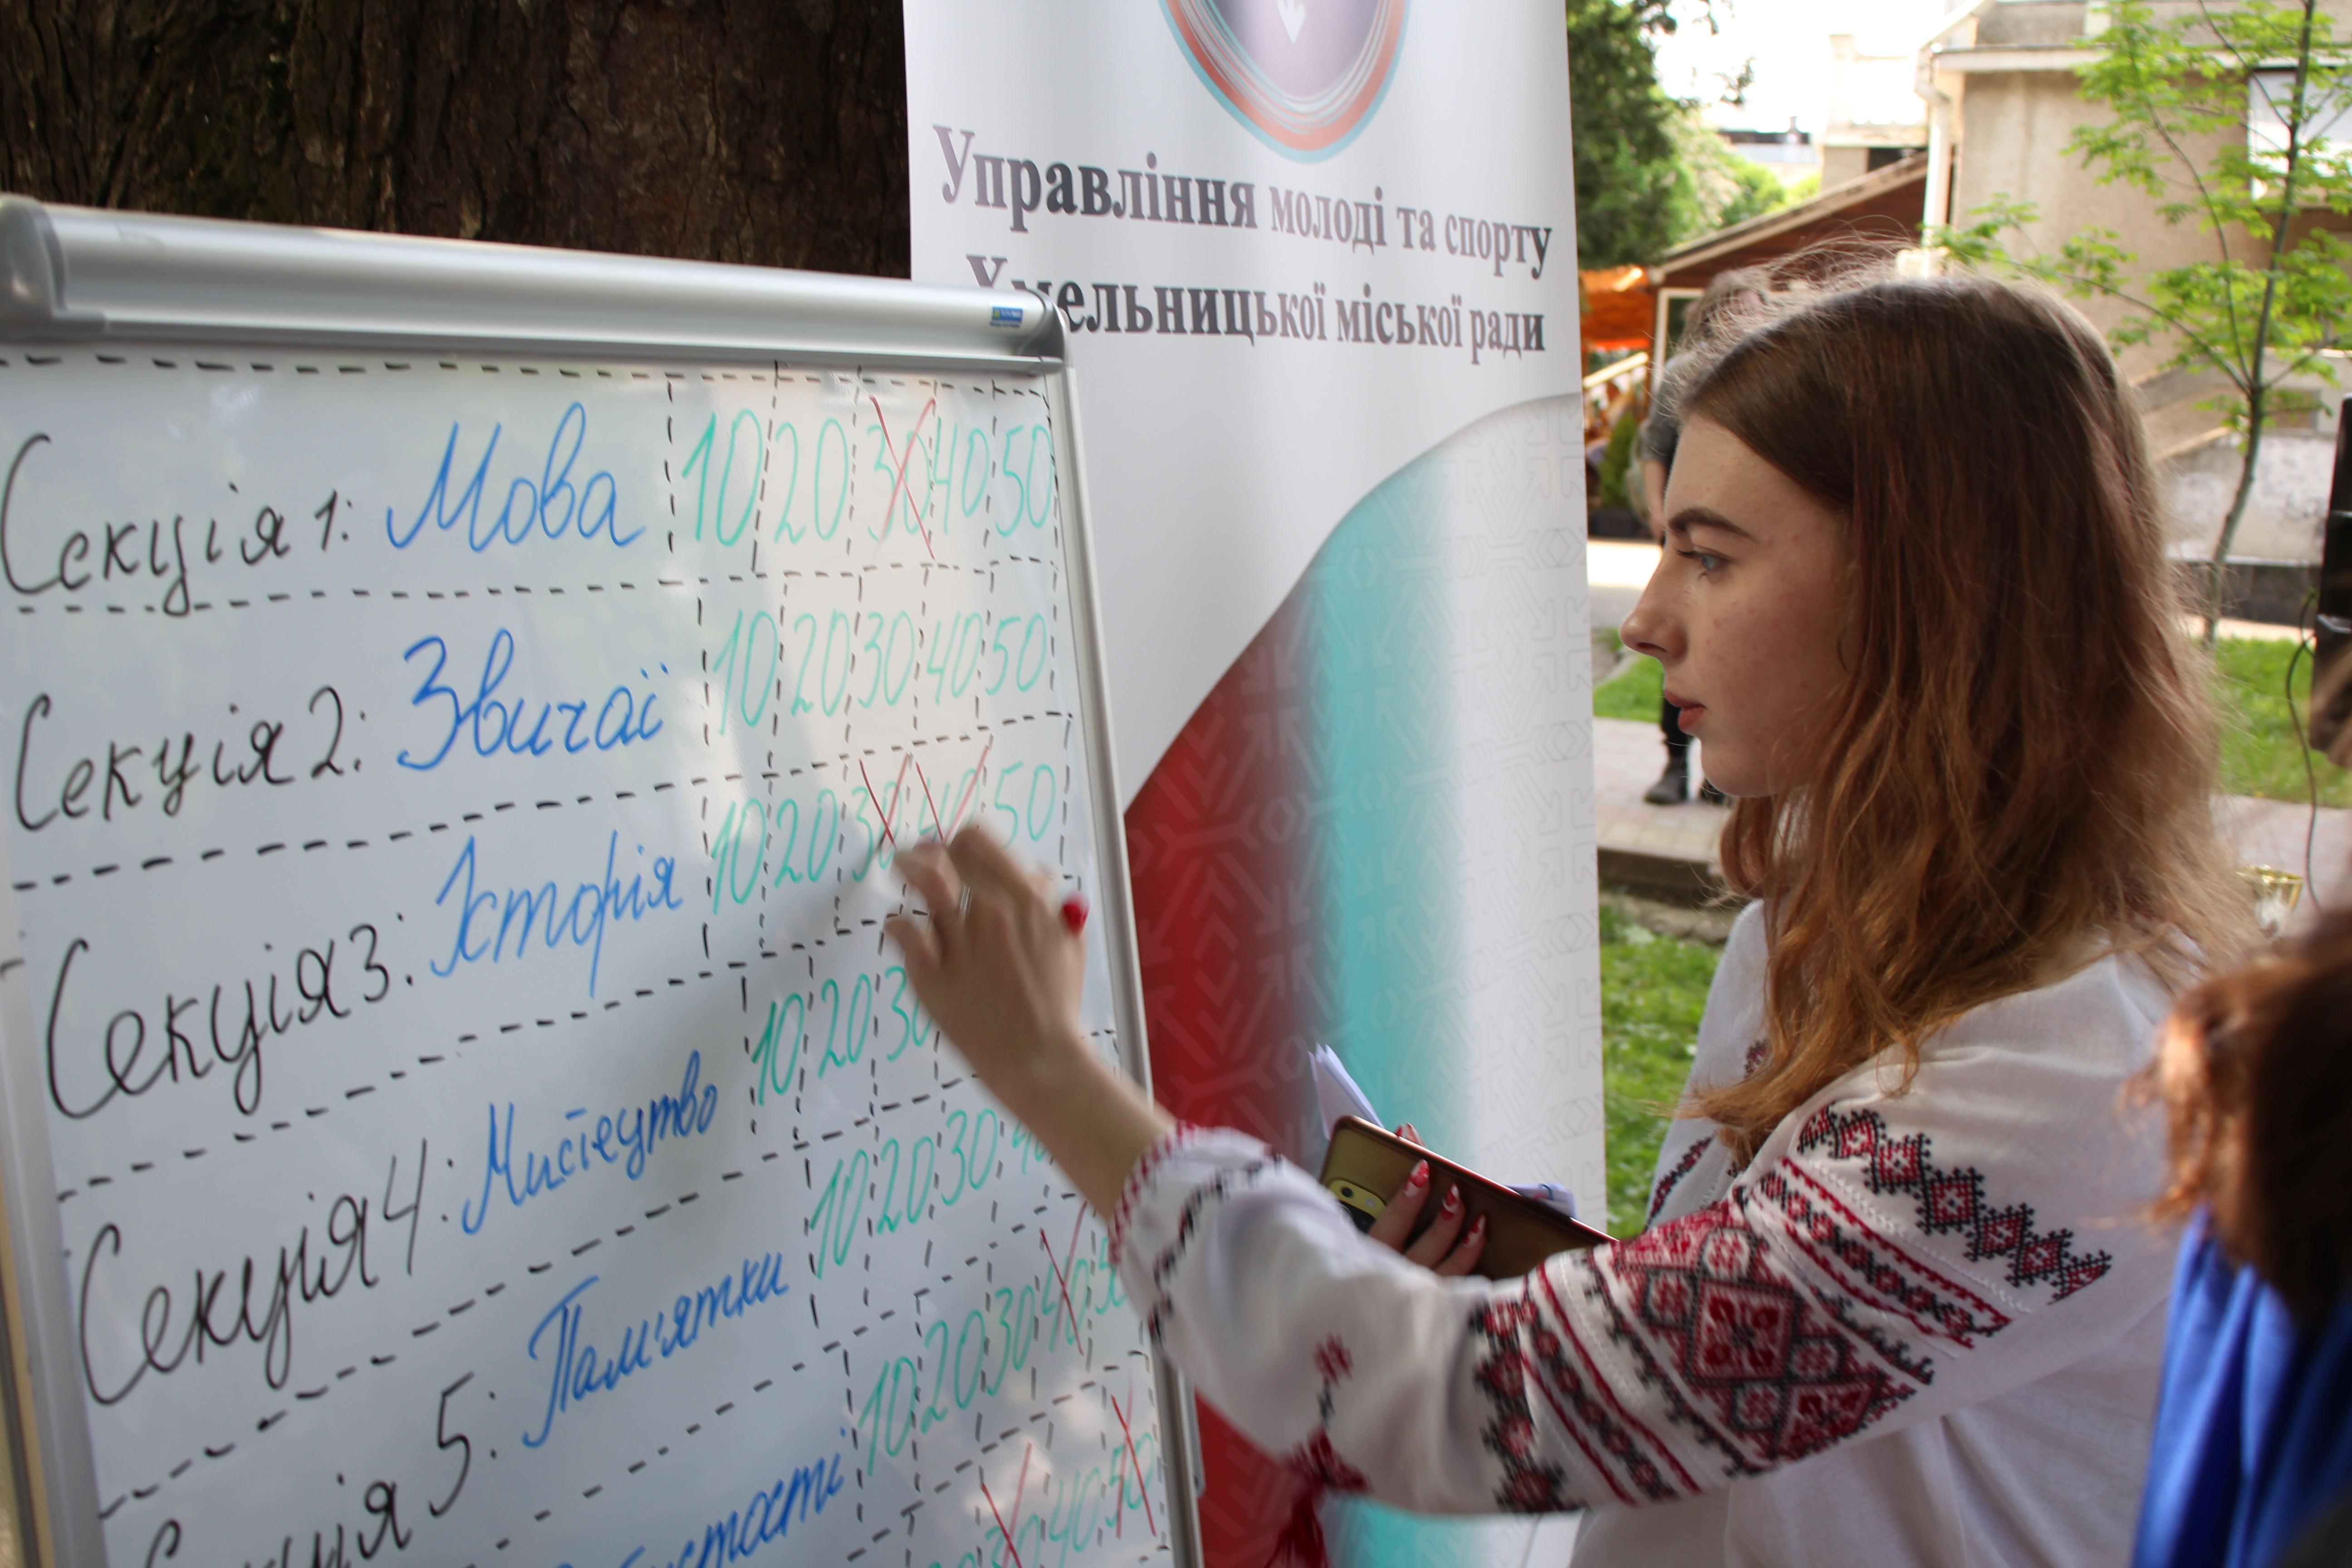 Управління молоді та спорту
Хмельницької міської ради
Секція 1: Мова 10 20 30 40 50
Секція 2: Звичаї 10 20 30 40 50
Секція 3: Історія 10 20 30 40 50
Секція 4: Мистецтво 10 20 30
Секція 5: Пам'ятки 10 20 30 40
10 20 30 40 50
30 40 50